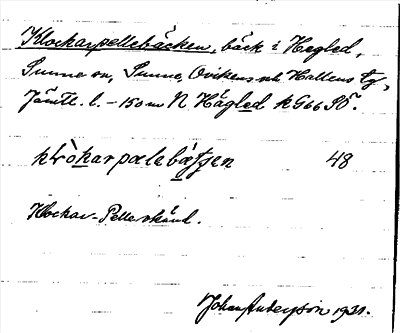 Klockarpellebäcken, bäck i Hägled,
Sunne sn, Sunne, Ovikens och Hallens tg,
Jämtl. l. – 150 m N Hägled kG66SÖ.
klòkarpælebæ̀tʃen 48
Klockar-Pelle okänd.
Johan Anderson 1931.